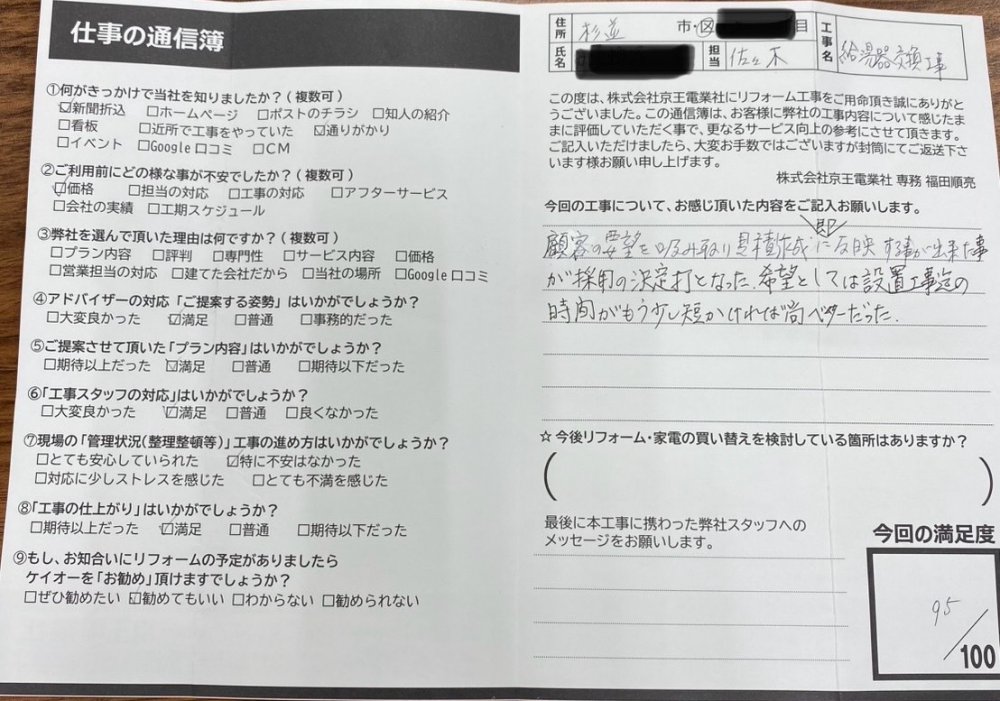 仕事の通信簿
①何がきっかけで当社を知りましたか?(複数可)
☑新聞折込 □ホームページ □ポストのチラシ □知人の紹介
□看板 □近所で工事をやっていた ☑通りがかり
□イベント □Google口コミ □CM
②ご利用前にどの様な事が不安でしたか?(複数可)
☑価格 □担当の対応 □工事の対応 □アフターサービス
□会社の実績 □工期スケジュール
③弊社を選んで頂いた理由は何ですか?(複数可)
□プラン内容 □評判 □専門性 □サービス内容 □価格
□営業担当の対応 □建てた会社だから □当社の場所 □Google口コミ
④アドバイザーの対応「ご提案する姿勢」はいかがでしょうか?
□大変良かった ☑満足 □普通 □事務的だった
⑤ご提案させて頂いた「プラン内容」はいかがでしょうか?
□期待以上だった ☑満足 □普通 □期待以下だった
⑥「工事スタッフの対応」はいかがでしょうか?
□大変良かった ☑満足 □普通 □良くなかった
⑦現場の「管理状況(整理整頓等)」工事の進め方はいかがでしょうか?
□とても安心していられた ☑特に不安はなかった
□対応に少しストレスを感じた □とても不満を感じた
⑧「工事の仕上がり」はいかがでしょうか?
□期待以上だった ☑満足 □普通 □期待以下だった
⑨もし、お知合いにリフォームの予定がありましたら
ケイオーを「お勧め」頂けますでしょうか?
□ぜひ勧めたい ☑勧めてもいい □わからない □勧められない
住所 杉並 市・区 目
氏名 担当 佐々木
工事名 給湯器交換工事
この度は、株式会社京王電業社にリフォーム工事をご用命頂き誠にありがと
うございました。この通信簿は、お客様に弊社の工事内容について感じたま
まに評価していただく事で、更なるサービス向上の参考にさせて頂きます。
ご記入いただけましたら、大変お手数ではございますが封筒にてご返送下さ
います様お願い申し上げます。
株式会社京王電業社 専務 福田順亮
今回の工事について、お感じ頂いた内容をご記入お願いします。
顧客の要望を汲み取り見積作成に即反映する事が出来た事
が採用の決定打となった。希望としては設置工事迄の
時間がもう少し短かければ尚ベターだった.
☆今後リフォーム・家電の買い替えを検討している箇所はありますか?
( )
最後に本工事に携わった弊社スタッフへの
メッセージをお願いします。
今回の満足度
95/100